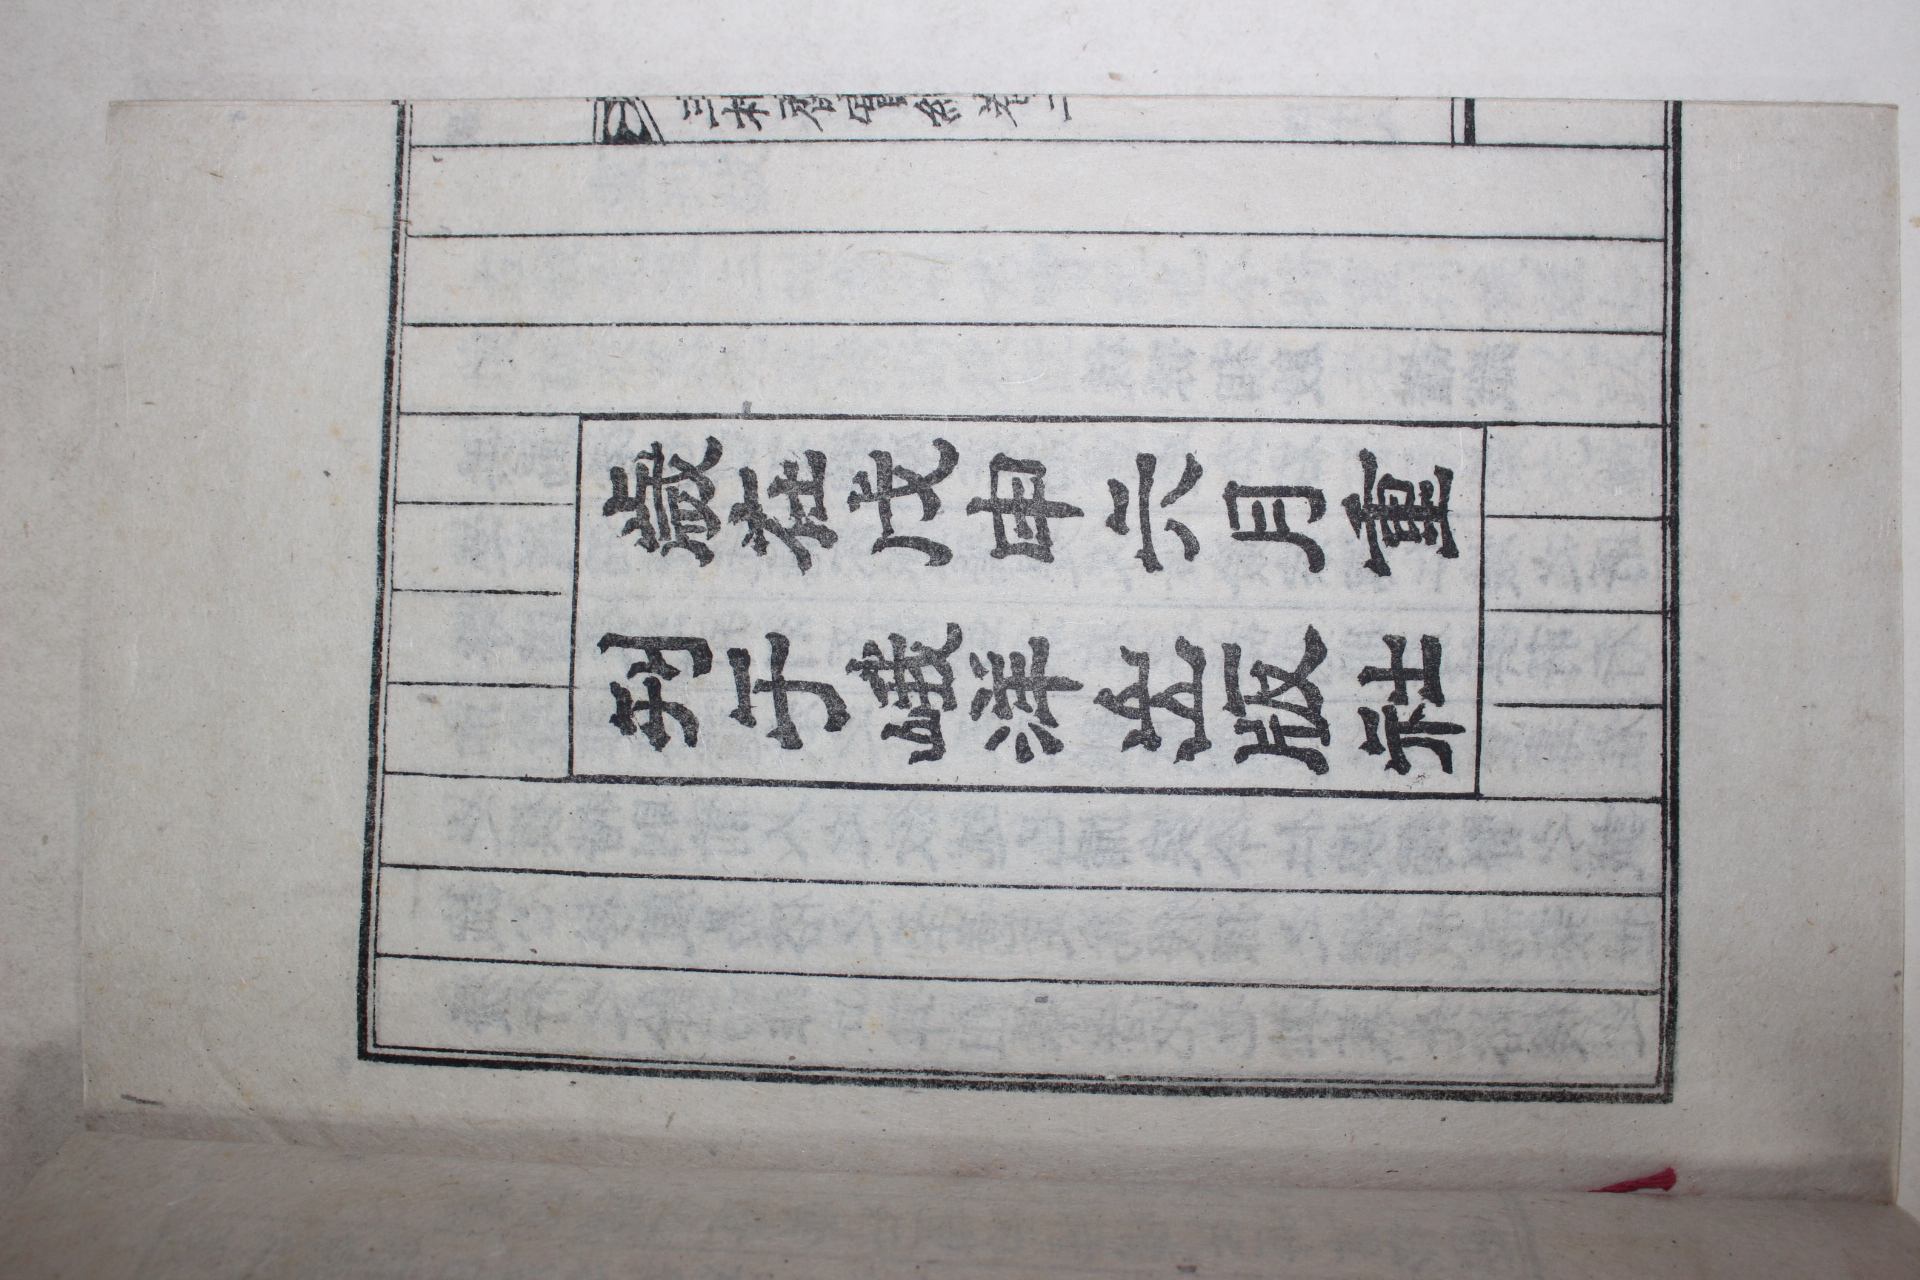 歲在戊申六月重
刊于洋出版社